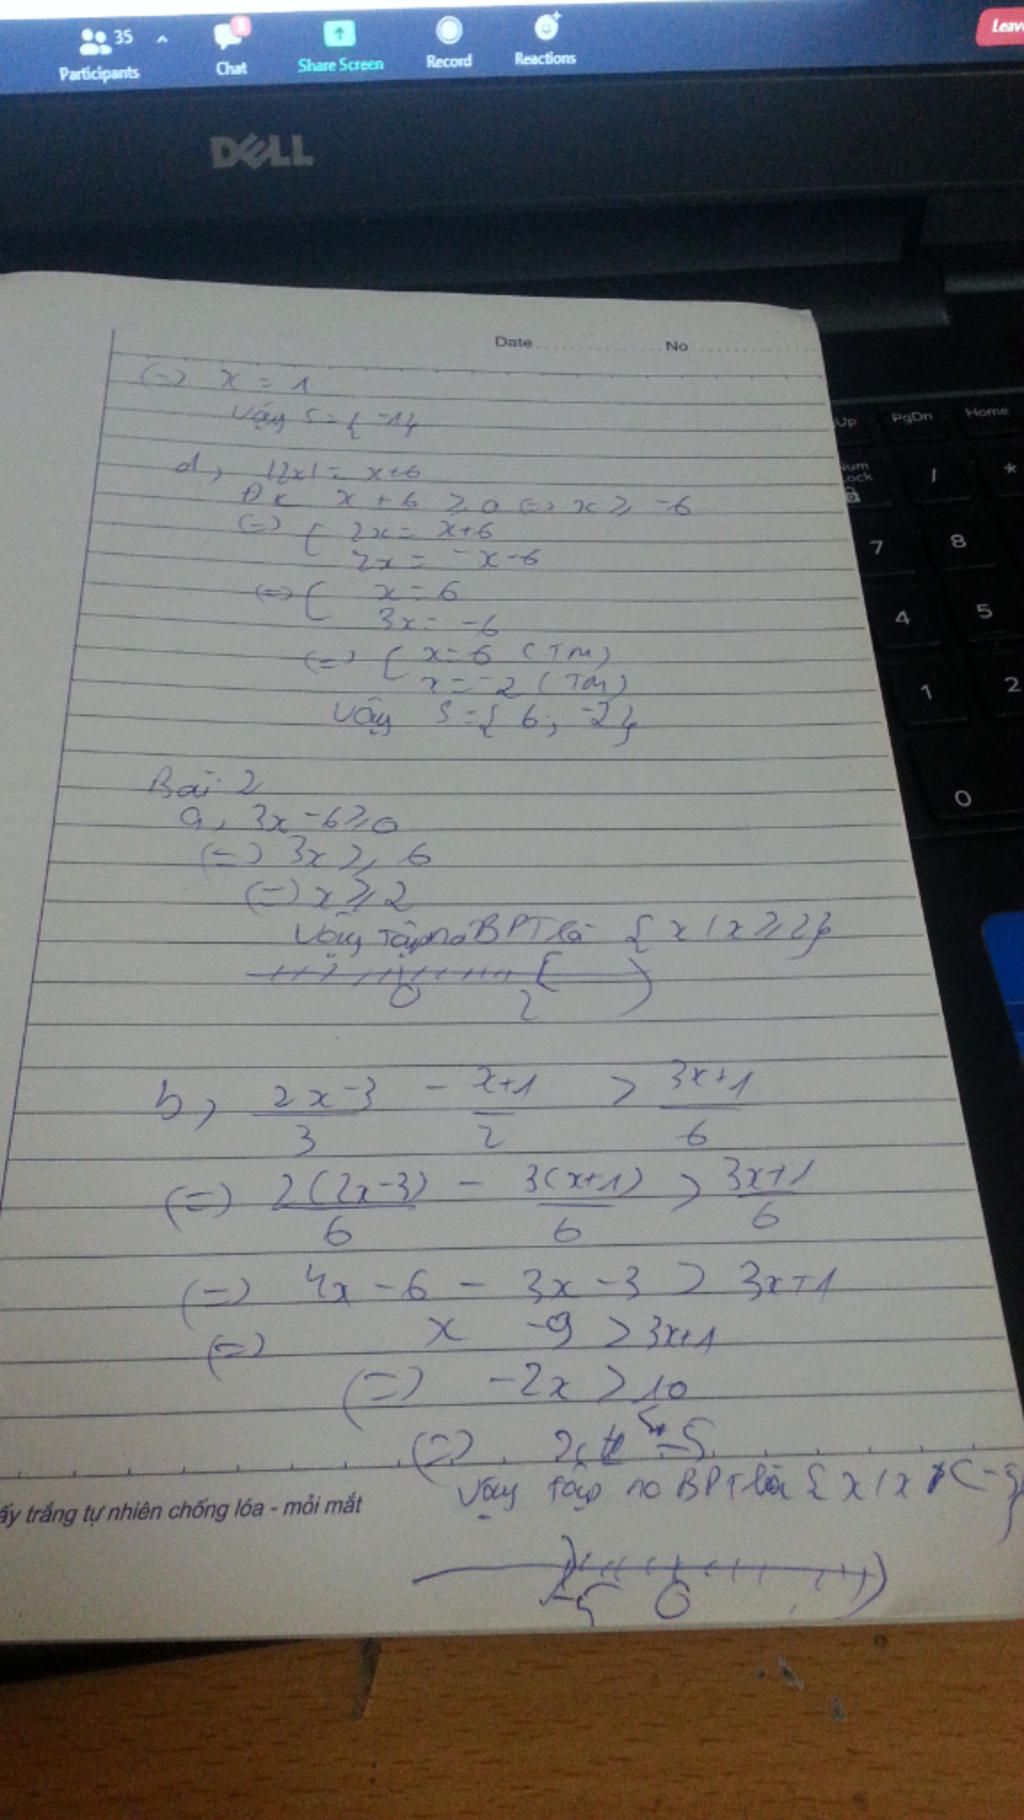 35
Participants
Chat
Share Screen
Record
Reactions
Leave
DELL
Date
No
(=) x = 1
Vậy S = { -1}
d, |2x| = x+6
ĐK x + 6 ≥ 0 (=) x ≥ -6
(=) [ 2x = x+6
2x = -x-6
(=) [ x = 6
3x = -6
(=) [ x = 6 (TM)
x = -2 (TM)
Vậy S = { 6; -2}
Bài 2
a, 3x - 6 ≥ 0
(=) 3x ≥ 6
(=) x ≥ 2
Vậy Tập no BPT là { x | x ≥ 2}
0 2
b, 2x-3/3 - x+1/2 > 3x+1/6
(=) 2(2x-3)/6 - 3(x+1)/6 > 3x+1/6
(=) 4x - 6 - 3x - 3 > 3x+1
(=) x -9 > 3x+1
(=) -2x > 10
(=) x -5
Vậy Tập no BPT là { x | x < -5}
-5 0
ấy trắng tự nhiên chống lóa - mỏi mắt
Up
PgDn
Home
Num
Lock
/
*
7
8
4
5
1
2
0